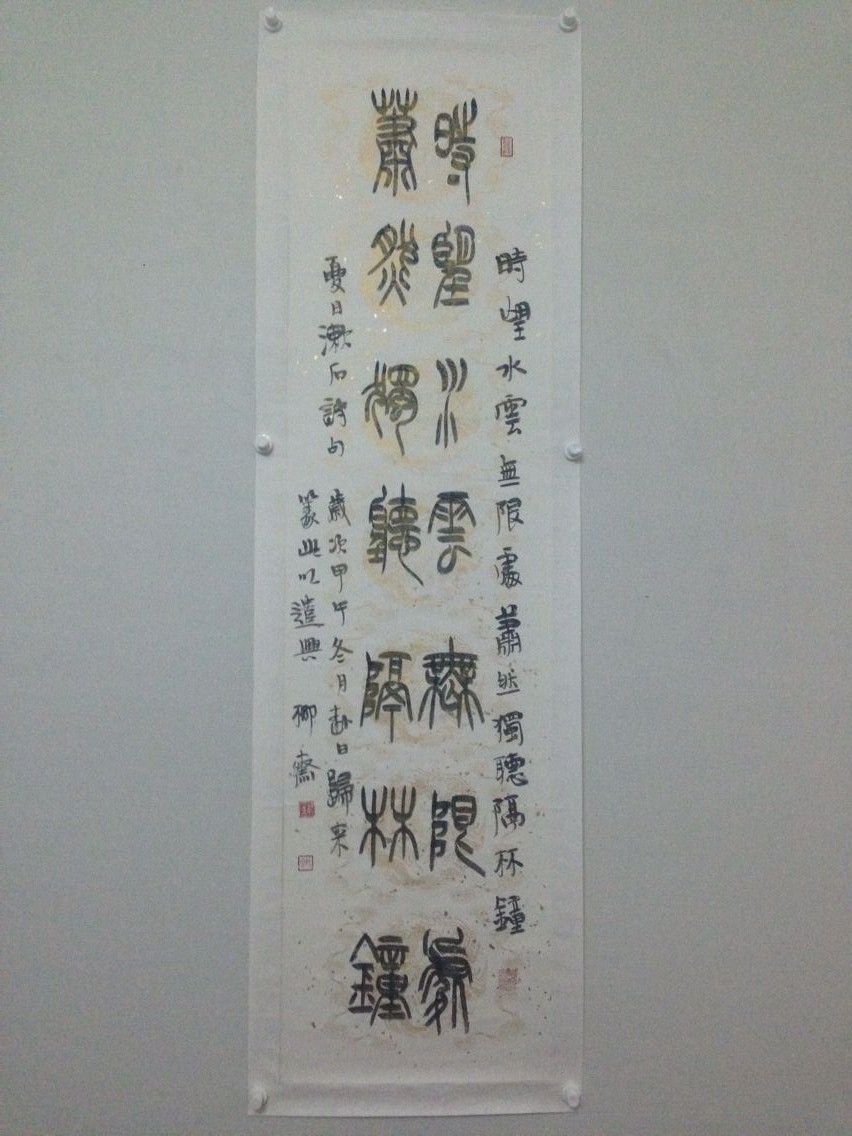 時望水雲無限處蕭然獨聽隔林鐘
時望水雲無限處
蕭然獨聽隔林鐘
夏目漱石詩句 歲次甲午冬月赴日歸來
篆此以遣興 柳齋